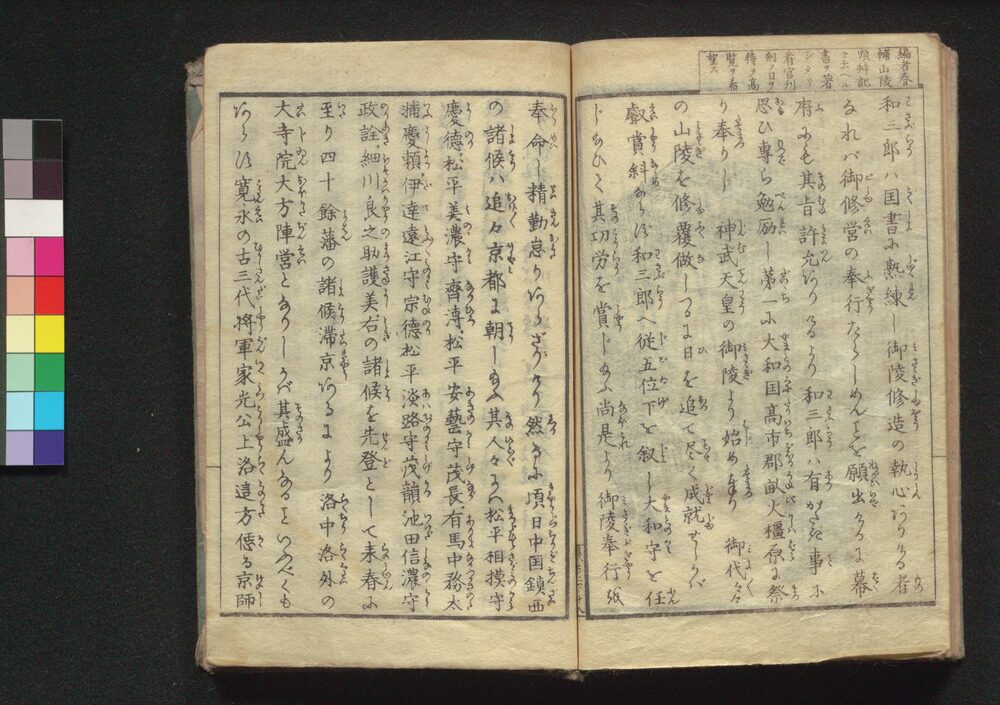 編者春
輔山陵
頌辨記
ト云ヘル
書ヲ著
シタリ
看官刋
刻ノ日ヲ
待テ高
覧ヲ希
望ス
和三郎ハ国書に熟練し御陵修造の執心ある者
なれバ御修営の奉行たらしめんとを願出けるに幕
府にも其旨許允ありけるより和三郎ハ有がたき事に
思ひ専ら勉励し第一に大和国高市郡畝火橿原に祭
り奉りし 神武天皇の御陵より始め奉り 御代々々
の山陵を修覆做しけるに日を追て尽く成就せしかバ
叡賞斜ならず和三郎へ従五位下を叙し大和守を任
じ給ひて其功労を賞し給ふ尚是より 御陵奉行張
奉命し精勤怠りあらざりけり然るに頃日中国鎮西
の諸候ハ追々京都に朝し給ふ其人々にハ松平相摸守
慶徳松平美濃守齊溥松平安藝守茂長有馬中務太
捕慶頼伊達遠江守宗徳松平淡路守茂韻池田信濃守
政詮細川良之助護美右の諸候を先登として来春に
至り四十餘藩の諸候滞京あるにより洛中洛外の
大寺院大方陣営となりしかバ其盛んなるといふべくも
あらず寛永の古三代将軍家光公上洛這方徳る京師